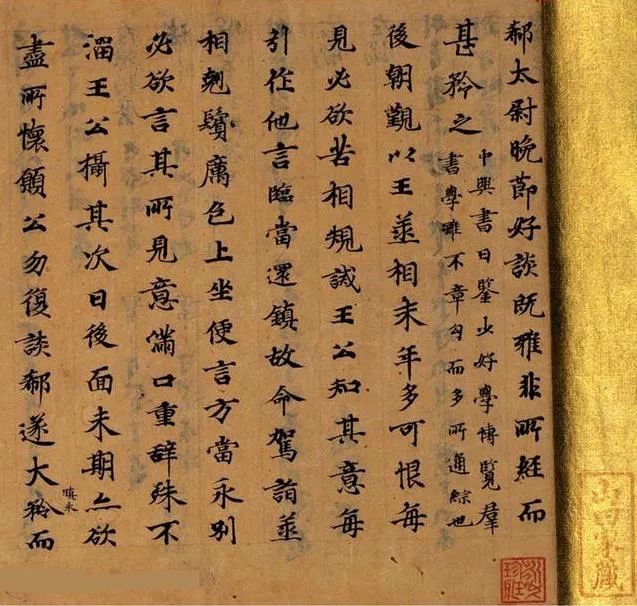 山田家藏
郗太尉晚節好談既雅非所經而
甚矜之
中興書曰鑒少好學博覽羣
書學雖不章句而多所通綜也
後朝覲以王丞相末年多可恨每
見必欲苦相規誡王公知其意每
引作他言臨當還鎮故命駕詣丞
相翹鬚厲色上坐便言方當永別
必欲言其所見意滿口重辭殊不
溜王公攝其次曰後面未期亦欲
盡所懷願公勿復談郗遂大矜而
瞋